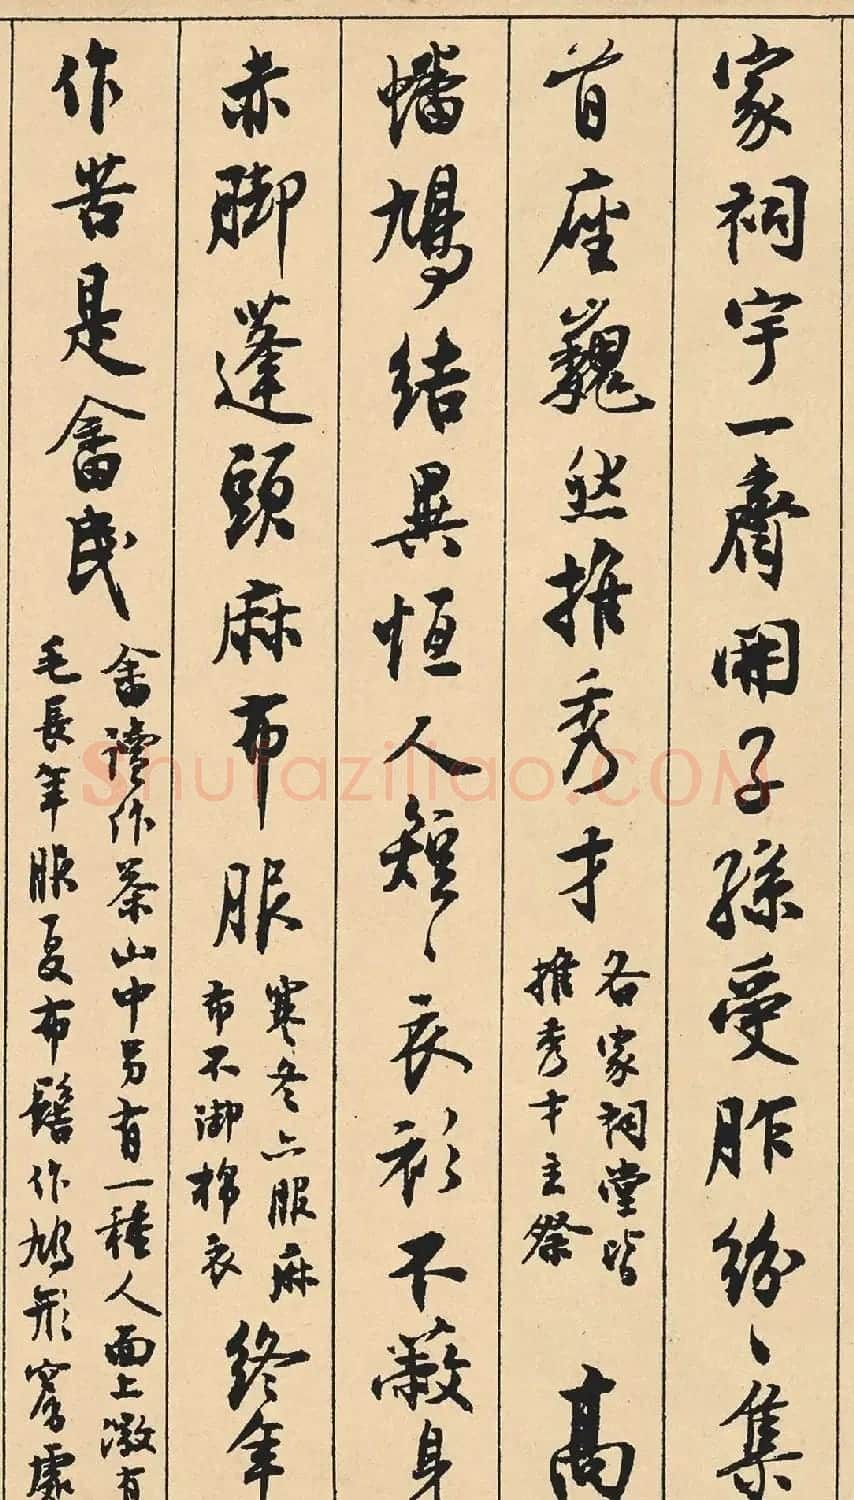 家祠宇一齊開子孫受胙紛〻集
首座巍然推秀才
各家祠堂皆
推秀才主祭
高
蟠鳩結異恒人短〻衣衫不蔽身
赤脚蓬頭麻布服
寒冬亦服麻
布不御棉衣
終年
作苦是畲民
畲讀作茶山中另有一種人面上微有
毛長年服夏布髻作鳩形窵處
Shufaziliao.COM